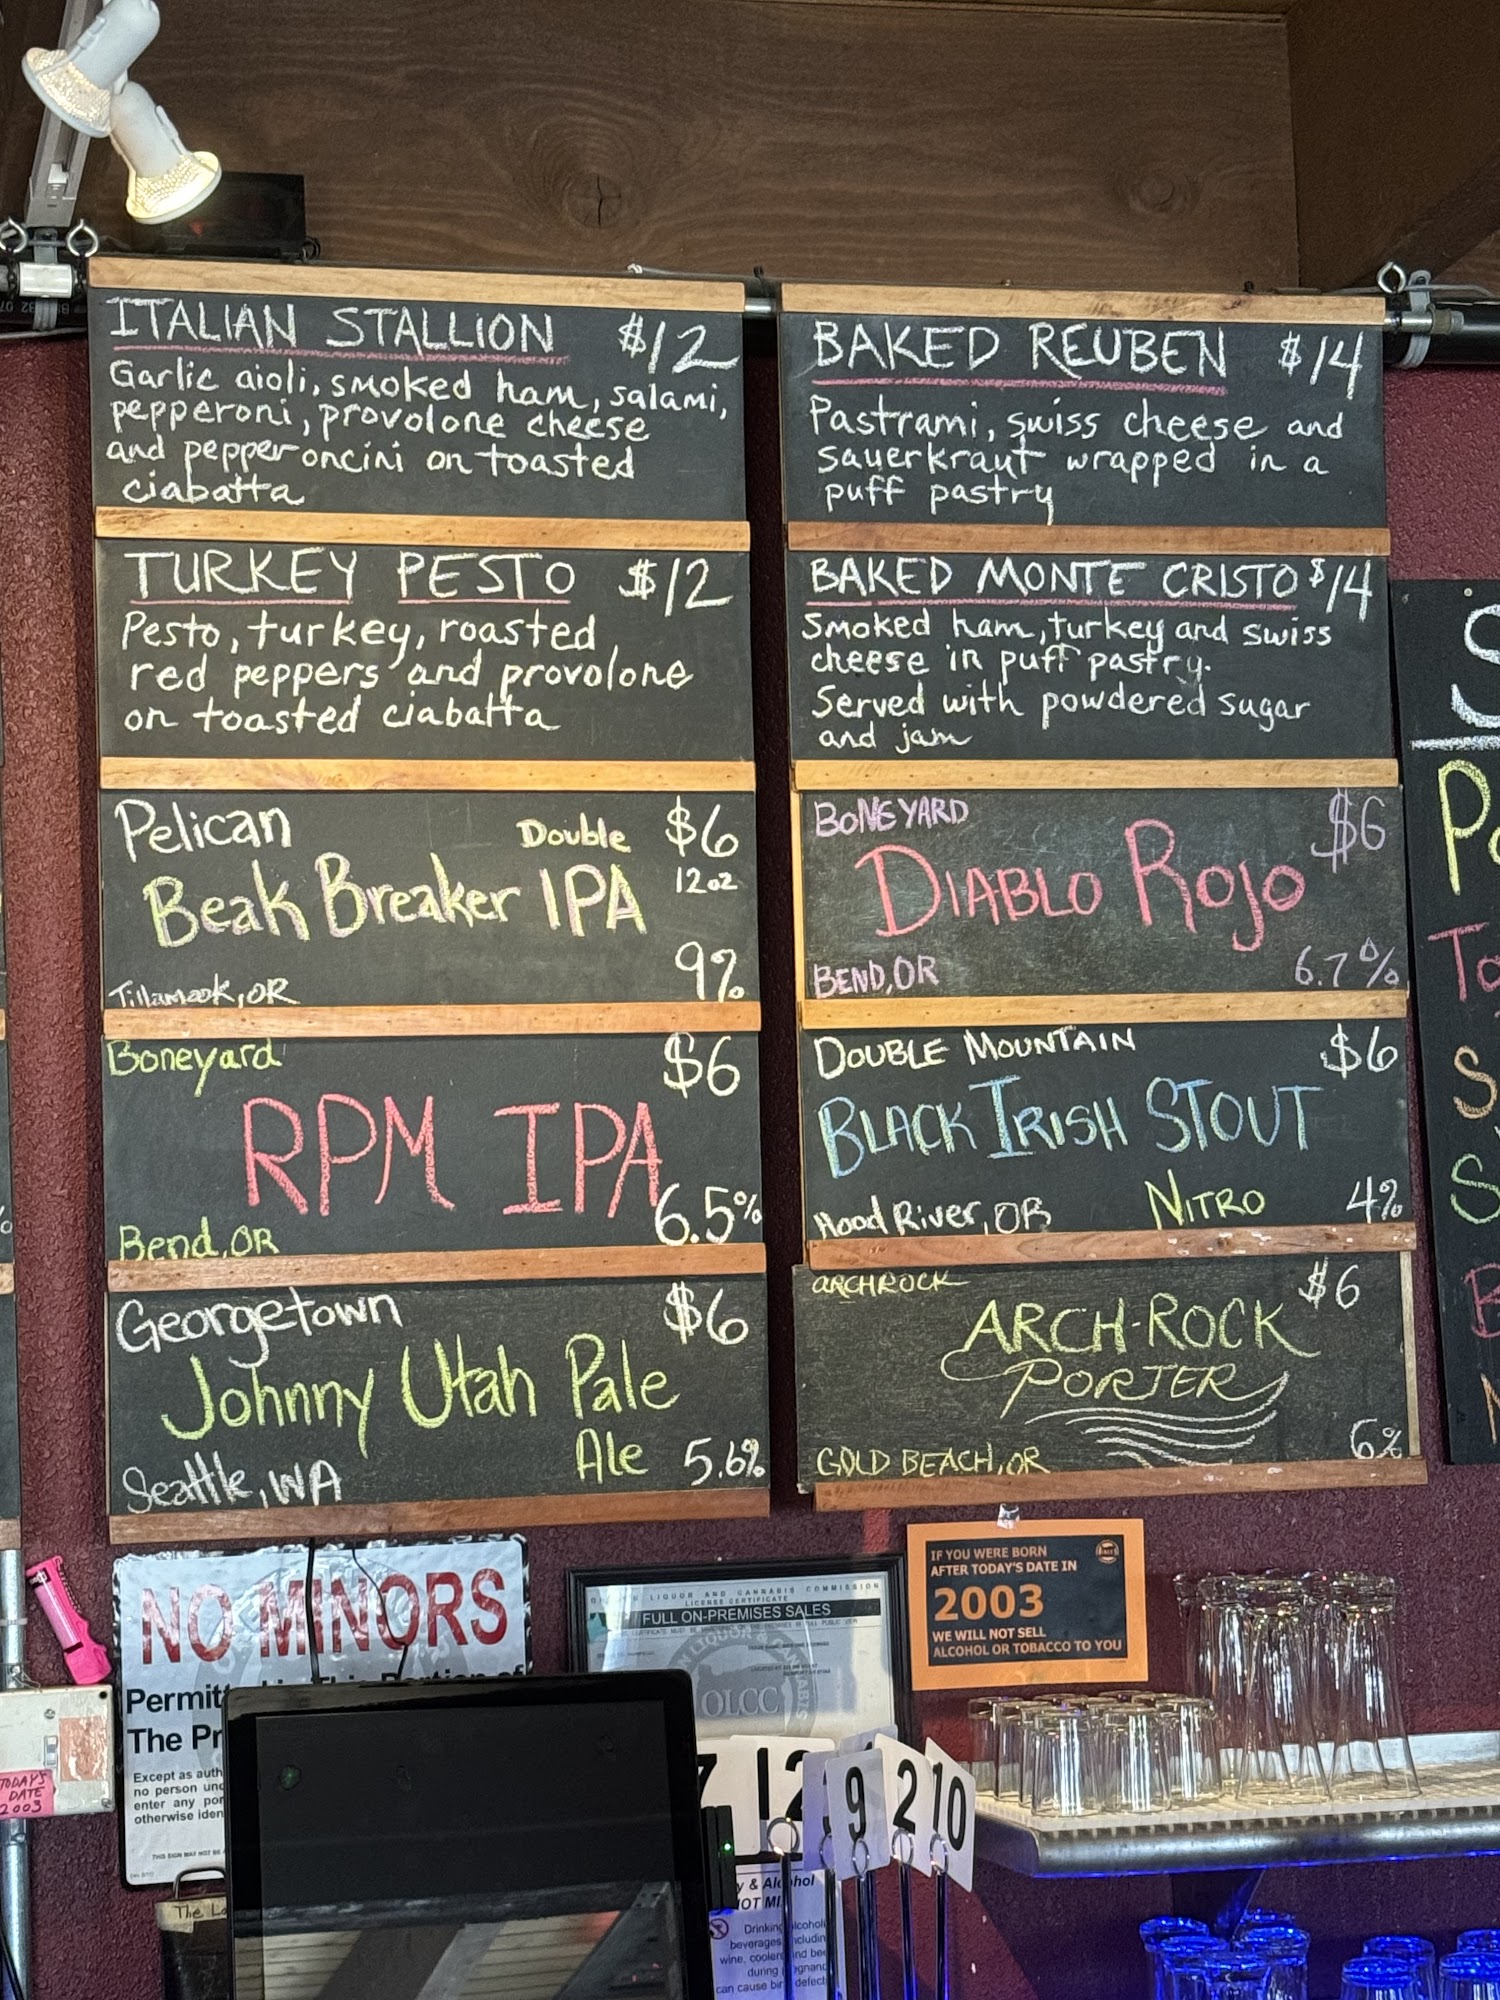 ITALIAN STALLION $12
Garlic aioli, smoked ham, salami,
pepperoni, provolone cheese
and pepperoncini on toasted
ciabatta
TURKEY PESTO $12
Pesto, turkey, roasted
red peppers and provolone
on toasted ciabatta
Pelican Double $6
Beak Breaker IPA 12oz
9%
Tillamook, OR
Boneyard $6
RPM IPA
6.5%
Bend, OR
Georgetown $6
Johnny Utah Pale
Ale 5.6%
Seattle, WA
BAKED REUBEN $14
Pastrami, swiss cheese and
sauerkraut wrapped in a
puff pastry
BAKED MONTE CRISTO $14
Smoked ham, turkey and swiss
cheese in puff pastry.
Served with powdered sugar
and jam
BONEYARD $6
DIABLO ROJO
BEND, OR 6.7%
DOUBLE MOUNTAIN $6
BLACK IRISH STOUT
Hood River, OR NITRO 4%
ARCHROCK $6
ARCH-ROCK
PORTER
GOLD BEACH, OR 6%
NO MINORS
Permitted in This Portion of
The Pr
Except as auth
no person und
enter any por
otherwise iden
LIQUOR AND CANNABIS COMMISSION
LICENSE CERTIFICATE
FULL ON-PREMISES SALES
OLCC
IF YOU WERE BORN
AFTER TODAY'S DATE IN
2003
WE WILL NOT SELL
ALCOHOL OR TOBACCO TO YOU
TODAY'S
DATE
2003
7 12 9 2 10
y & Alcohol
NOT MI
Drinking alcoholic
beverages, includin
wine, coolers and bee
during pregnanc
can cause birth defect
The La